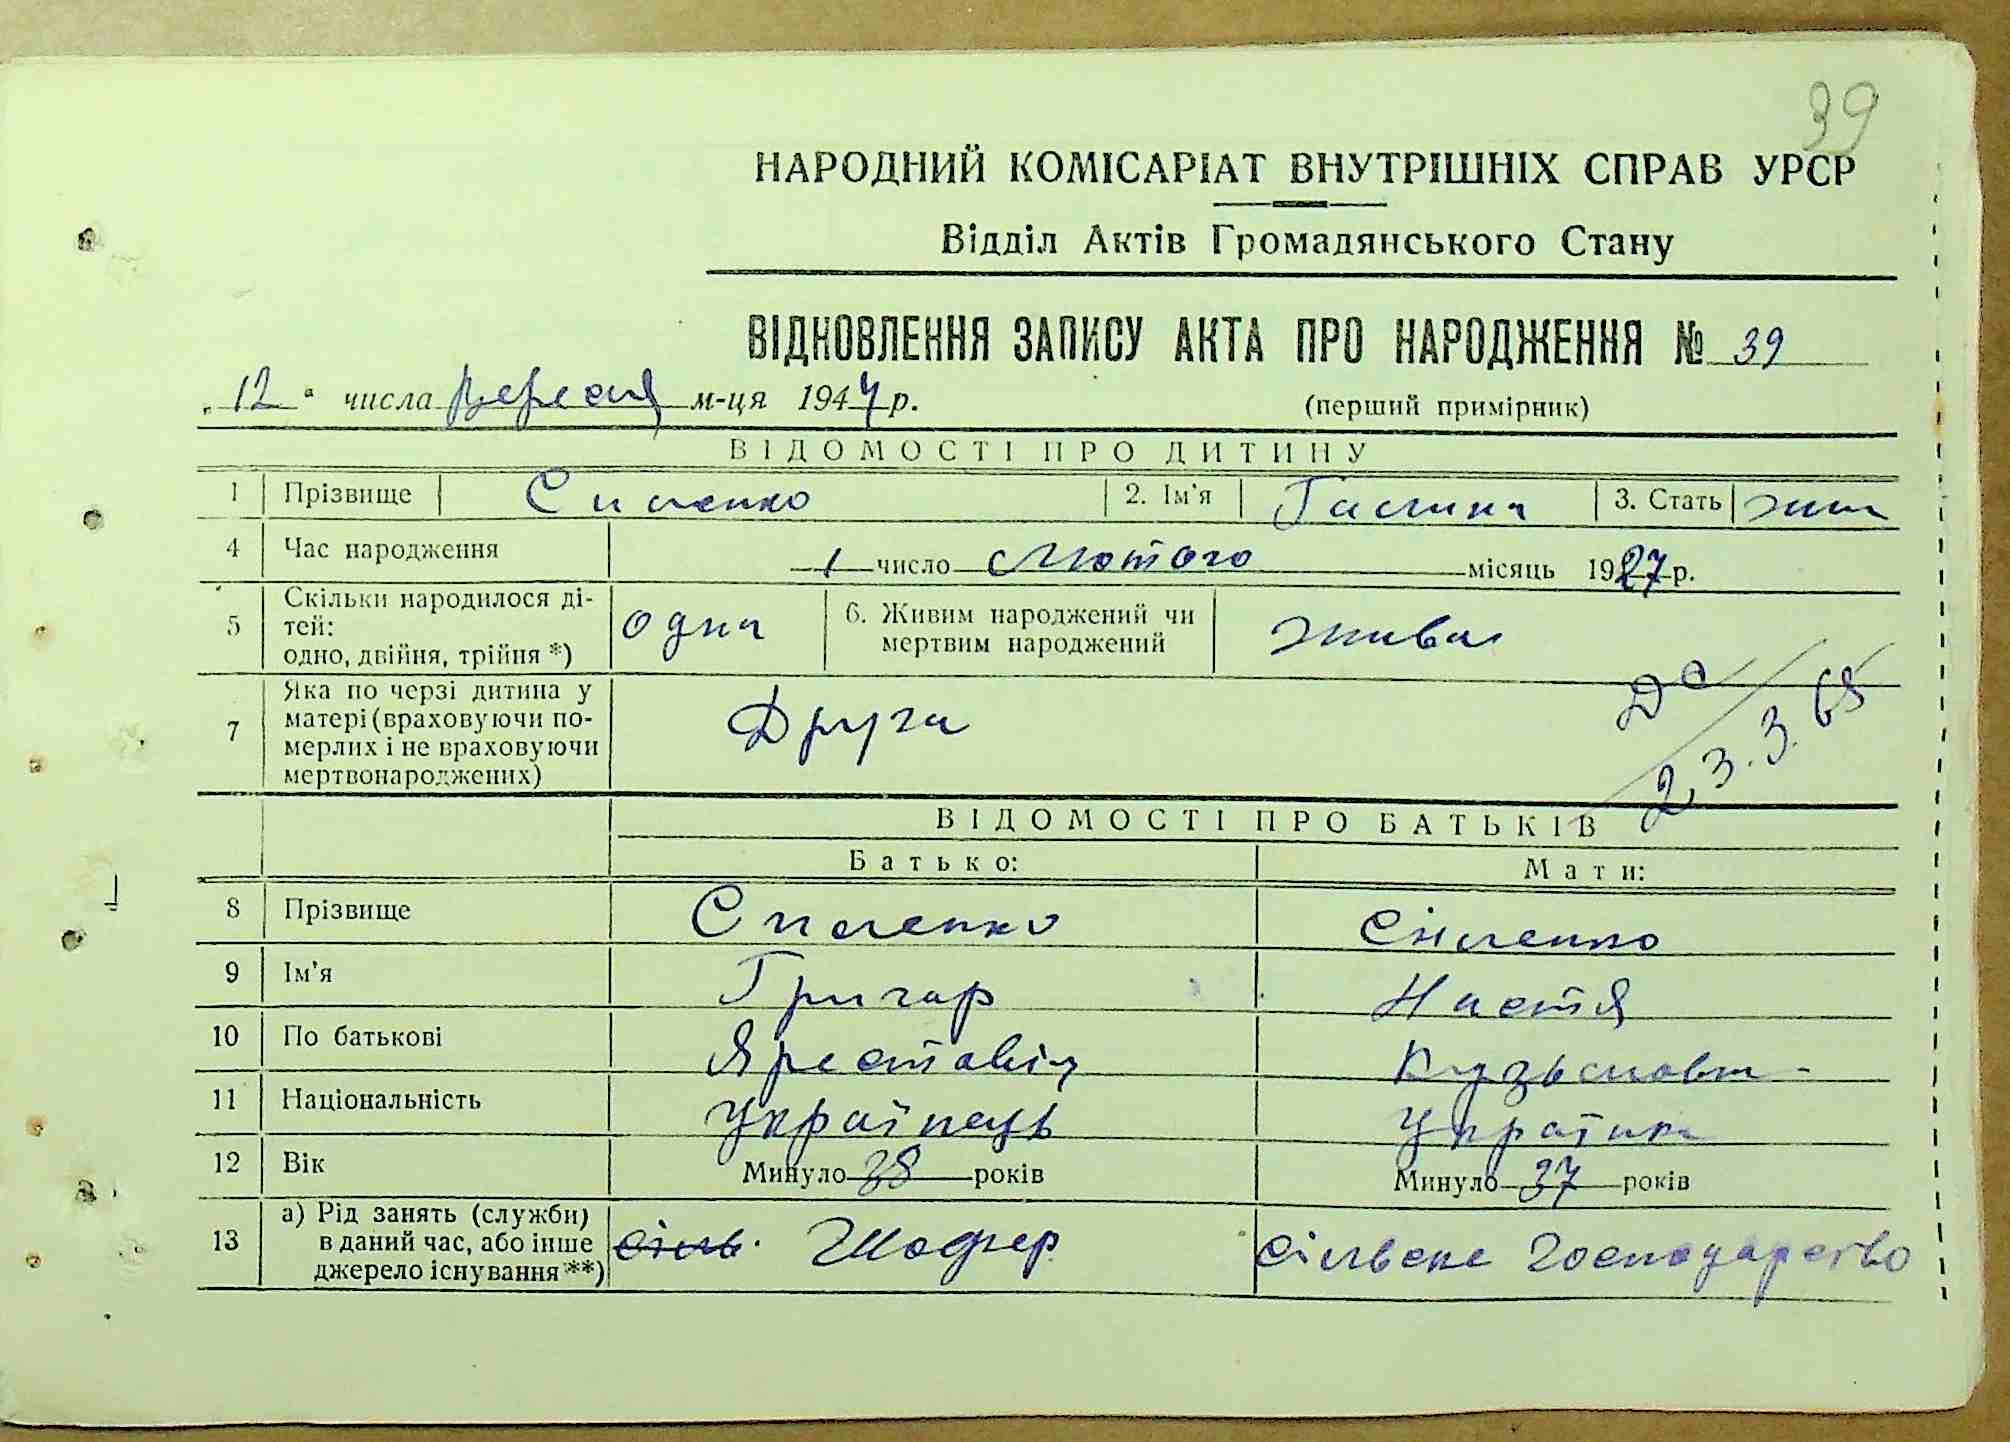 39
НАРОДНИЙ КОМІСАРІАТ ВНУТРІШНІХ СПРАВ УРСР
Відділ Актів Громадянського Стану
ВІДНОВЛЕННЯ ЗАПИСУ АКТА ПРО НАРОДЖЕННЯ № 39
„12“ числа вересня м-ця 1944 р. (перший примірник)
ВІДОМОСТІ ПРО ДИТИНУ
1 Прізвище 2. Ім'я Галина 3. Стать жін
4 Час народження 1 число Лютого місяць 1927 р.
5 Скільки народилося ді-
тей:
одно, двійня, трійня *) одна
6. Живим народжений чи
мертвим народжений жива
7 Яка по черзі дитина у
матері (враховуючи по-
мерлих і не враховуючи
мертвонароджених) Друга
23.3.65
ВІДОМОСТІ ПРО БАТЬКІВ
Батько: Мати:
8 Прізвище
9 Ім'я Григор Настя
10 По батькові
11 Національність Українець Українка
12 Вік Минуло 38 років Минуло 37 років
13 а) Рід занять (служби)
в даний час, або інше
джерело існування **) сіль. Шофер сільске господарство